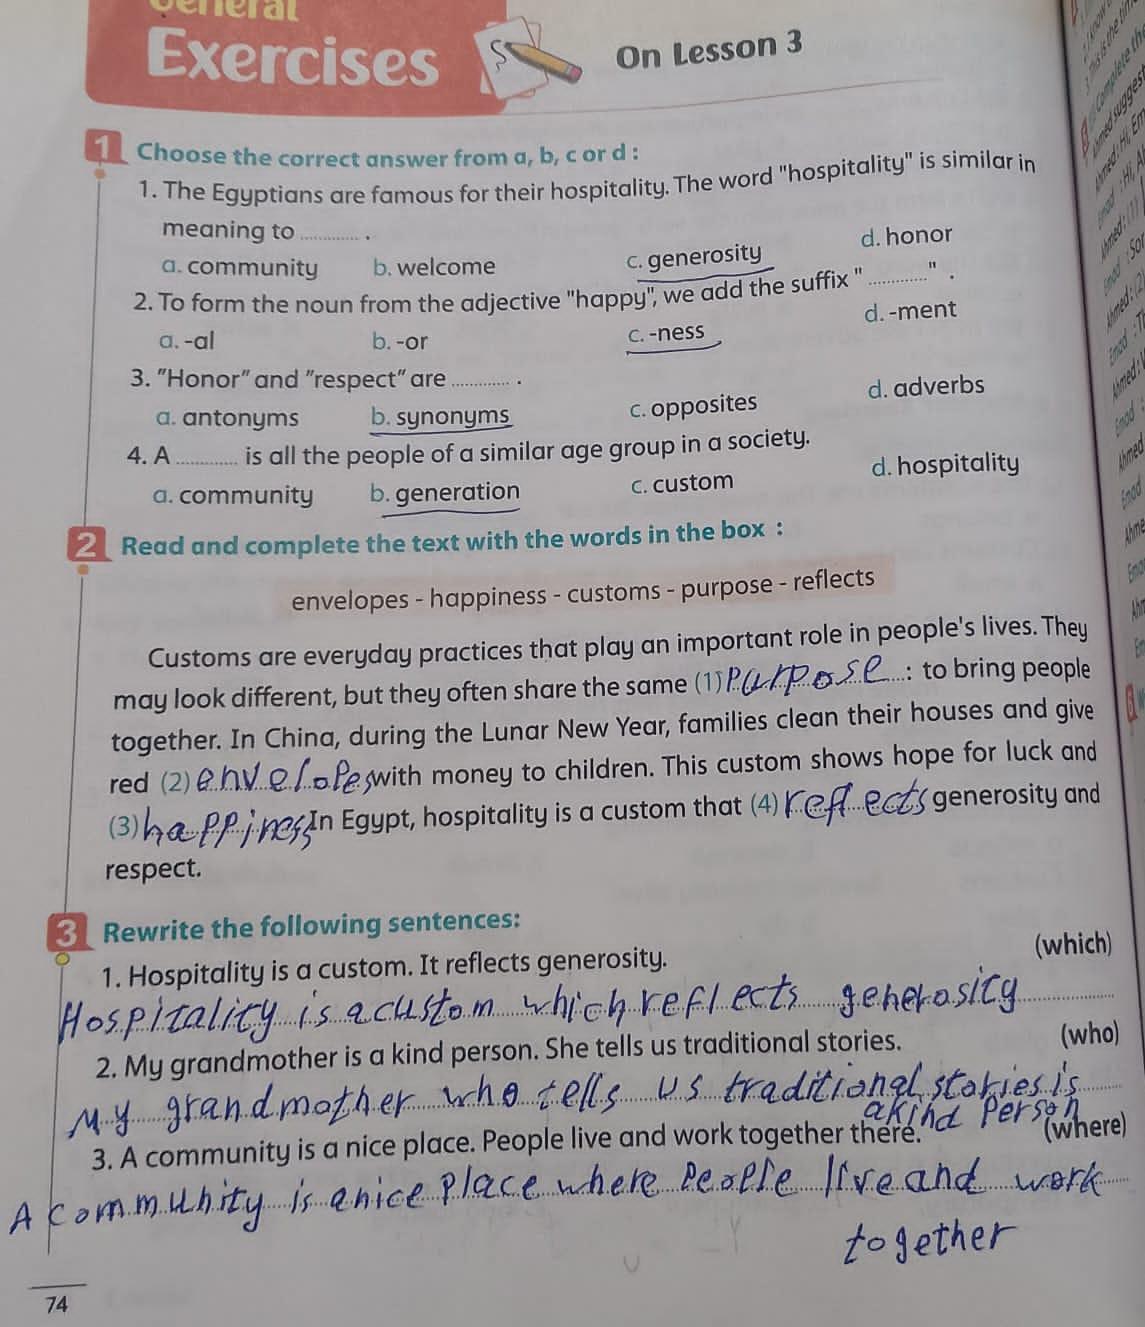 General
Exercises
On Lesson 3
1 Choose the correct answer from a, b, c or d :
1. The Egyptians are famous for their hospitality. The word "hospitality" is similar in
meaning to ............ .
a. community b. welcome c. generosity d. honor
2. To form the noun from the adjective "happy", we add the suffix " ............ " .
a. -al b. -or c. -ness d. -ment
3. "Honor" and "respect" are ............ .
a. antonyms b. synonyms c. opposites d. adverbs
4. A ............ is all the people of a similar age group in a society.
a. community b. generation c. custom d. hospitality
2 Read and complete the text with the words in the box :
envelopes - happiness - customs - purpose - reflects
Customs are everyday practices that play an important role in people's lives. They
may look different, but they often share the same (1) purpose : to bring people
together. In China, during the Lunar New Year, families clean their houses and give
red (2) envelopes with money to children. This custom shows hope for luck and
(3) happiness In Egypt, hospitality is a custom that (4) reflects generosity and
respect.
3 Rewrite the following sentences:
1. Hospitality is a custom. It reflects generosity. (which)
Hospitality is a custom which reflects generosity
2. My grandmother is a kind person. She tells us traditional stories. (who)
My grandmother who tells us traditional stories is
a kind Person
3. A community is a nice place. People live and work together there. (where)
A community is a nice place where people live and work
together
74